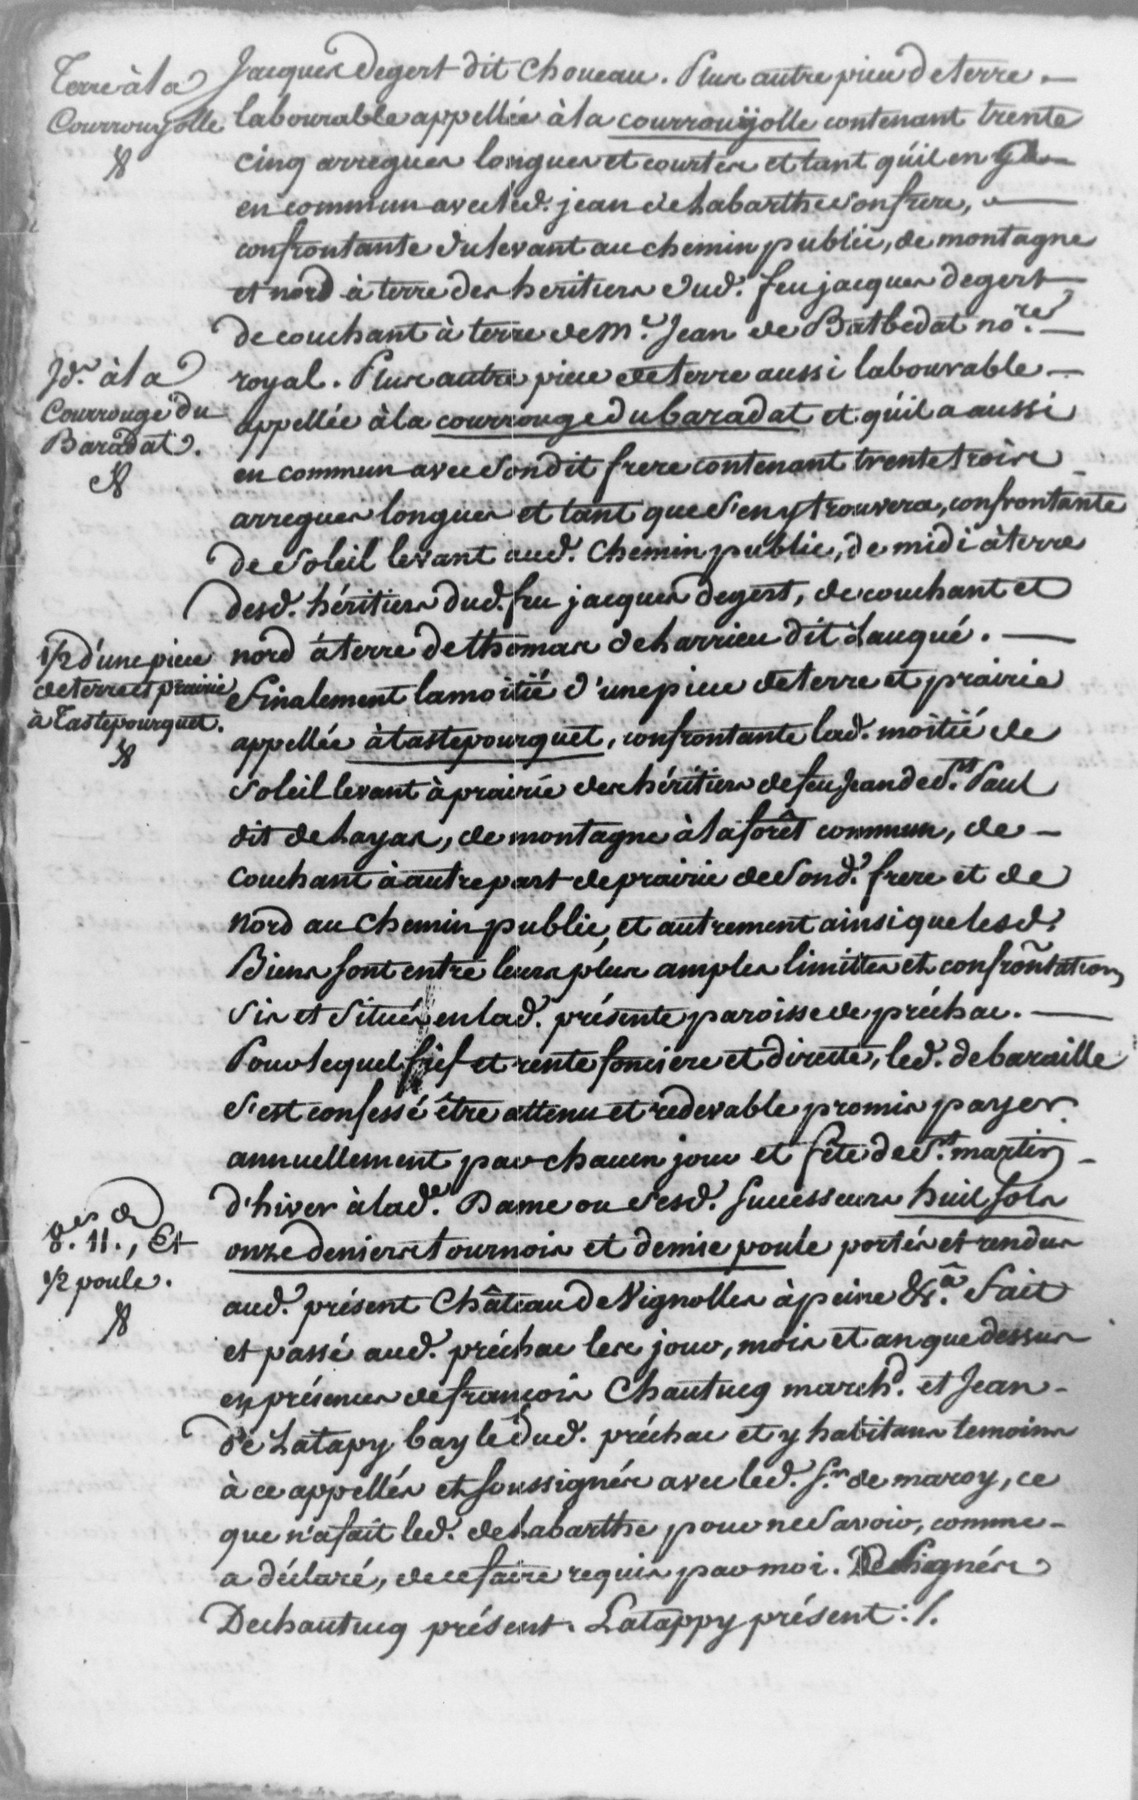 Terre à la
Courrouyolle
Jacques Degert dit Choueau. Plus autre piece de terre
labourable appellée à la courrouÿolle contenant trente
cinq arregues longues et courtes et tant qu'il en ya
en commun avec led. jean de Labarthe son frere,
confrontante du levant au chemin public, de montagne
et nord à terre des heritiers dud. feu jacques degert
de couchant à terre de Me. Jean de Batbedat nore.
Jd. à la
Courrouge du
Baradat.
royal. Plus autre piece de terre aussi labourable
appellée à la courrouge du baradat et qu'il a aussi
en commun avec sondit frere contenant trente trois
arregues longues et tant que s'en y trouvera, confrontante
de soleil levant aud. chemin public, de midi à terre
desd. héritiers dud. feu jacques degert, de couchant et
nord à terre de thomas de harrieu dit Lauqué.
1/2 d'une piece
de terre et prairie
à Tastepourquet.
Finalement la moitié d'une piece de terre et prairie
appellée à tastepourquet, confrontante lad. moitié de
soleil levant à prairie des héritiers de feu Jean de St. Paul
dit de Layas, de montagne à la forêt commun, de
couchant à autre part de prairie de sond. frere et de
nord au chemin public, et autrement ainsi que lesd.
Biens sont entre leurs plus amples limittes et confrõntations
sis et situés en lad. présente paroisse de préchac.
Pour lequel fief et rente fonciere et directe, led. debaraille
s'est confessé être attenu et redevable promis payer
annuellement par chacun jour et fête de St. martin
d'hiver à lade. Dame ou sesd. successeurs huit sols
8.s 11.d, Et
1/2 poule.
onze deniers tournois et demie poule portés et rendus
aud. présent Château de Vignolles à peine &.a Fait
et passé aud. préchac les jour, mois et an que dessus
en présences de françois Chautucq march.d et Jean
de Latapy bayle dud. préchac et y habitans temoins
à ce appellés et soussignés avec led. Sr. de maroy, ce
que n'a fait led. de Labarthe pour ne savoir, comme
a déclaré, de ce faire requis par moi. signés
Dechautucq présent. Latappy présent :/.